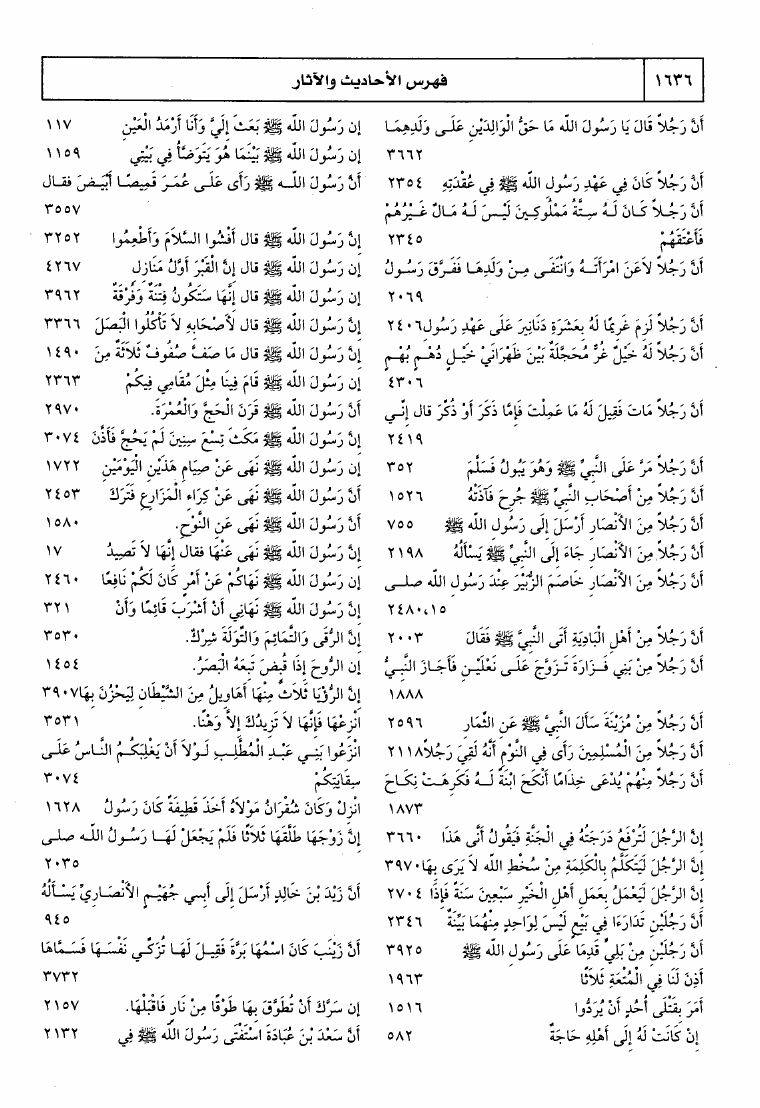 ١٦٣٦
فهرس الأحاديث والآثار
أَنَّ رَجُلاً قَالَ يَا رَسُولَ الله مَا حَقُّ الْوَالِدَيْنِ عَلَى وَلَدِهِمَا
٣٦٦٢
أَنَّ رَجُلاً كَانَ فِي عَهْدِ رَسُولِ الله ﷺ فِي عُقْدَتِهِ ٢٣٥٤
أَنَّ رَجُلاً كَانَ لَهُ سِتَّةُ مَمْلُوكِينَ لَيْسَ لَهُ مَالٌ غَيْرُهُمْ
فَأَعْتَقَهُمْ ٢٣٤٥
أَنَّ رَجُلاً لاَعَنَ امْرَأَتَهُ وَانْتَفَى مِنْ وَلَدِهَا فَفَرَّقَ رَسُولُ
٢٠٦٩
أَنَّ رَجُلاً لَزِمَ غَرِيمًا لَهُ بِعَشَرَةِ دَنَانِيرَ عَلَى عَهْدِ رَسُولِ ٢٤٠٦
أَنَّ رَجُلاً لَهُ خَيْلٌ غُرٌّ مُحَجَّلَةٌ بَيْنَ ظَهْرَانَيْ خَيْلٍ دُهْمٍ بُهْمٍ
٤٣٠٦
أَنَّ رَجُلاً مَاتَ فَقِيلَ لَهُ مَا عَمِلْتَ فَإِمَّا ذَكَرَ أَوْ ذُكِّرَ قال إِنِّي
٢٤١٩
أَنَّ رَجُلاً مَرَّ عَلَى النَّبِيِّ ﷺ وَهُوَ يَبُولُ فَسَلَّمَ ٣٥٢
أَنَّ رَجُلاً مِنْ أَصْحَابِ النَّبِيِّ ﷺ جُرِحَ فَآذَتْهُ ١٥٢٦
أَنَّ رَجُلاً مِنَ الأَنْصَارِ أَرْسَلَ إِلَى رَسُولِ الله ﷺ ٧٥٥
أَنَّ رَجُلاً مِنَ الأَنْصَارِ جَاءَ إِلَى النَّبِيِّ ﷺ يَسْأَلُهُ ٢١٩٨
أَنَّ رَجُلاً مِنَ الأَنْصَارِ خَاصَمَ الزُّبَيْرَ عِنْدَ رَسُولِ الله صلى
٢٤٨٠،١٥
أَنَّ رَجُلاً مِنْ أَهْلِ الْبَادِيَةِ أَتَى النَّبِيَّ ﷺ فَقَالَ ٢٠٠٣
أَنَّ رَجُلاً مِنْ بَنِي فَزَارَةَ تَزَوَّجَ عَلَى نَعْلَيْنِ فَأَجَازَ النَّبِيُّ
١٨٨٨
أَنَّ رَجُلاً مِنْ مُزَيْنَةَ سَأَلَ النَّبِيَّ ﷺ عَنِ الثِّمَارِ ٢٥٩٦
أَنَّ رَجُلاً مِنَ الْمُسْلِمِينَ رَأَى فِي النَّوْمِ أَنَّهُ لَقِيَ رَجُلاً ٢١١٨
أَنَّ رَجُلاً مِنْهُمْ يُدْعَى خِذَامًا أَنْكَحَ ابْنَةً لَهُ فَكَرِهَتْ نِكَاحَ
١٨٧٣
إِنَّ الرَّجُلَ لَتُرْفَعُ دَرَجَتُهُ فِي الْجَنَّةِ فَيَقُولُ أَنَّى هَذَا ٣٦٦٠
إِنَّ الرَّجُلَ لَيَتَكَلَّمُ بِالْكَلِمَةِ مِنْ سُخْطِ الله لاَ يَرَى بِهَا ٣٩٧٠
إِنَّ الرَّجُلَ لَيَعْمَلُ بِعَمَلِ أَهْلِ الْخَيْرِ سَبْعِينَ سَنَةً فَإِذَا ٢٧٠٤
أَنَّ رَجُلَيْنِ تَدَارَءَا فِي بَيْعٍ لَيْسَ لِوَاحِدٍ مِنْهُمَا بَيِّنَةٌ ٢٣٤٦
أَنَّ رَجُلَيْنِ مِنْ بَلِيٍّ قَدِمَا عَلَى رَسُولِ الله ﷺ ٣٩٢٥
أَذِنَ لَنَا فِي الْمُتْعَةِ ثَلاَثًا ١٩٦٣
أَمَرَ بِقَتْلَى أُحُدٍ أَنْ يُرَدُّوا ١٥١٦
إِنْ كَانَتْ لَهُ إِلَى أَهْلِهِ حَاجَةٌ ٥٨٢
إن رَسُولَ الله ﷺ بَعَثَ إِلَيَّ وَأَنَا أَرْمَدُ الْعَيْنِ ١١٧
إن رَسُولَ الله ﷺ بَيْنَمَا هُوَ يَتَوَضَّأُ فِي بَيْتِي ١١٥٩
أَنَّ رَسُولَ اللـه ﷺ رَأَى عَلَى عُمَرَ قَمِيصًا أَبْيَضَ فقال
٣٥٥٧
إِنَّ رَسُولَ الله ﷺ قال أَفْشُوا السَّلاَمَ وَأَطْعِمُوا ٣٢٥٢
إن رَسُولَ الله ﷺ قال إِنَّ الْقَبْرَ أَوَّلُ مَنَازِلِ ٤٢٦٧
إن رَسُولَ الله ﷺ قال إِنَّهَا سَتَكُونُ فِتْنَةٌ وَفُرْقَةٌ ٣٩٦٢
إِنَّ رَسُولَ الله ﷺ قال لأَصْحَابِهِ لاَ تَأْكُلُوا الْبَصَلَ ٣٣٦٦
إِنَّ رَسُولَ الله ﷺ قال مَا صَفَّ صُفُوفٌ ثَلاَثَةٌ مِنَ ١٤٩٠
إن رَسُولَ الله ﷺ قَامَ فِينَا مِثْلَ مُقَامِي فِيكُمْ ٢٣٦٣
أَنَّ رَسُولَ الله ﷺ قَرَنَ الْحَجَّ وَالْعُمْرَةَ. ٢٩٧٠
إِنَّ رَسُولَ الله ﷺ مَكَثَ تِسْعَ سِنِينَ لَمْ يَحُجَّ فَأَذَّنَ ٣٠٧٤
إن رَسُولَ الله ﷺ نَهَى عَنْ صِيَامِ هَذَيْنِ الْيَوْمَيْنِ ١٧٢٢
أَنَّ رَسُولَ الله ﷺ نَهَى عَنْ كِرَاءِ الْمَزَارِعِ فَتَرَكَ ٢٤٥٣
أَنَّ رَسُولَ الله ﷺ نَهَى عَنِ النَّوْحِ. ١٥٨٠
إِنَّ رَسُولَ الله ﷺ نَهَى عَنْهَا فقال إِنَّهَا لاَ تَصِيدُ ١٧
إن رَسُولَ الله ﷺ نَهَاكُمْ عَنْ أَمْرٍ كَانَ لَكُمْ نَافِعًا ٢٤٦٠
إِنَّ رَسُولَ الله ﷺ نَهَانِي أَنْ أَشْرَبَ قَائِمًا وَأَنْ ٣٢١
إِنَّ الرُّقَى وَالتَّمَائِمَ وَالتِّوَلَةَ شِرْكٌ. ٣٥٣٠
إن الرُّوحَ إِذَا قُبِضَ تَبِعَهُ الْبَصَرُ. ١٤٥٤
إِنَّ الرُّؤْيَا ثَلاَثٌ مِنْهَا أَهَاوِيلُ مِنَ الشَّيْطَانِ لِيَحْزُنَ بِهَا ٣٩٠٧
انْزِعْهَا فَإِنَّهَا لاَ تَزِيدُكَ إِلاَّ وَهْنًا. ٣٥٣١
انْزَعُوا بَنِي عَبْدِ الْمُطَّلِبِ لَوْلاَ أَنْ يَغْلِبَكُمُ النَّاسُ عَلَى
سِقَايَتِكُمْ ٣٠٧٤
انْزِلْ وَكَانَ شُقْرَانُ مَوْلاَهُ أَخَذَ قَطِيفَةً كَانَ رَسُولُ ١٦٢٨
إِنَّ زَوْجَهَا طَلَّقَهَا ثَلاَثًا فَلَمْ يَجْعَلْ لَهَا رَسُولُ اللـه صلى
٢٠٣٥
أَنَّ زَيْدَ بْنَ خَالِدٍ أَرْسَلَ إِلَى أَبِي جُهَيْمٍ الأَنْصَارِيِّ يَسْأَلُهُ
٩٤٥
أَنَّ زَيْنَبَ كَانَ اسْمُهَا بَرَّةَ فَقِيلَ لَهَا تُزَكِّي نَفْسَهَا فَسَمَّاهَا
٣٧٣٢
إن سَرَّكَ أَنْ تُطَوَّقَ بِهَا طَوْقًا مِنْ نَارٍ فَاقْبَلْهَا. ٢١٥٧
أَنَّ سَعْدَ بْنَ عُبَادَةَ اسْتَفْتَى رَسُولَ الله ﷺ فِي ٢١٣٢